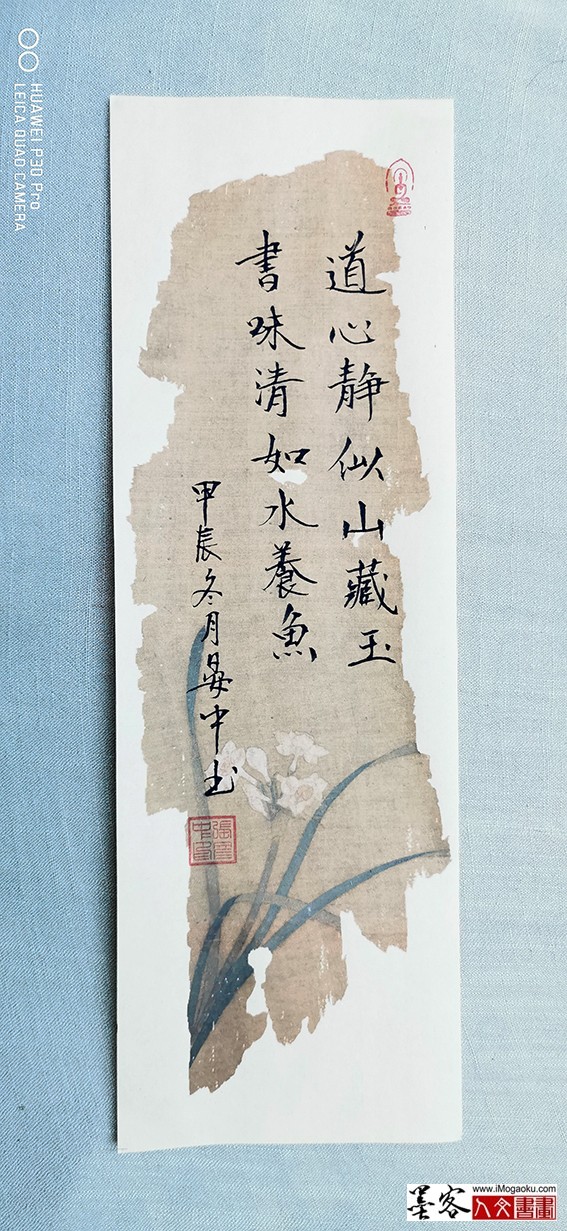 道心静似山藏玉
書味清如水養魚
甲辰冬月晏中书
HUAWEI P30 Pro
LEICA QUAD CAMERA
墨客
www.iMogaoku.com
人文書畫